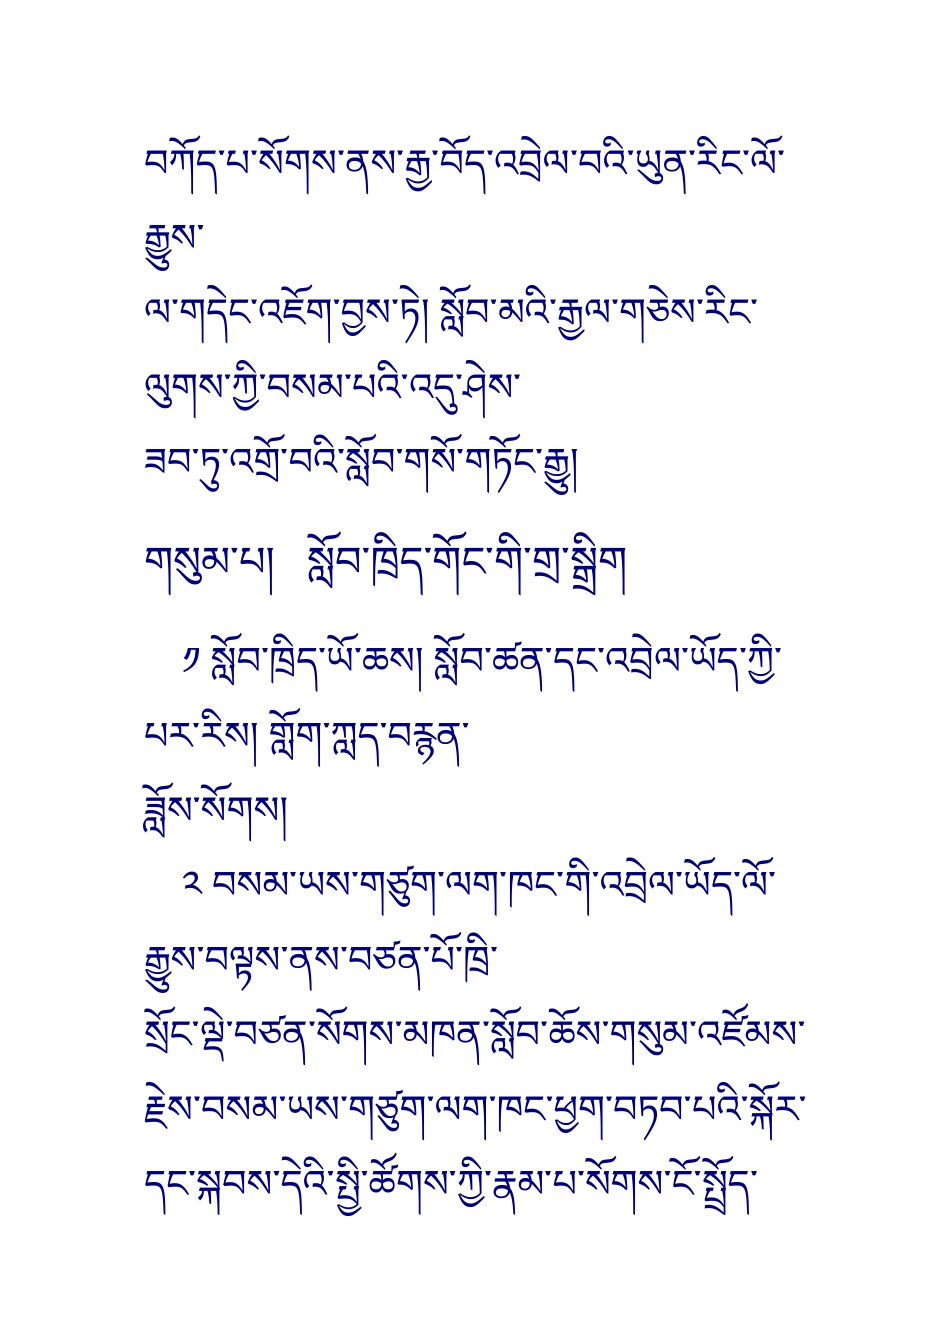 བཀོད་པ་སོགས་ནས་རྒྱ་བོད་འབྲེལ་བའི་ཡུན་རིང་ལོ་
རྒྱུས་
ལ་གདེང་འཇོག་བྱས་ཏེ། སློབ་མའི་རྒྱལ་གཅེས་རིང་
ལུགས་ཀྱི་བསམ་པའི་འདུ་ཤེས་
ཟབ་ཏུ་འགྲོ་བའི་སློབ་གསོ་གཏོང་རྒྱུ།
གསུམ་པ།  སློབ་ཁྲིད་གོང་གི་གྲ་སྒྲིག
༡ སློབ་ཁྲིད་ཡོ་ཆས། སློབ་ཚན་དང་འབྲེལ་ཡོད་ཀྱི་
པར་རིས། གློག་ཀླད་བརྙན་
ཟློས་སོགས།
༢ བསམ་ཡས་གཙུག་ལག་ཁང་གི་འབྲེལ་ཡོད་ལོ་
རྒྱུས་བལྟས་ནས་བཙན་པོ་ཁྲི་
སྲོང་ལྡེ་བཙན་སོགས་མཁན་སློབ་ཆོས་གསུམ་འཛོམས་
རྗེས་བསམ་ཡས་གཙུག་ལག་ཁང་ཕྱག་བཏབ་པའི་སྐོར་
དང་སྐབས་དེའི་སྤྱི་ཚོགས་ཀྱི་རྣམ་པ་སོགས་ངོ་སྤྲོད་